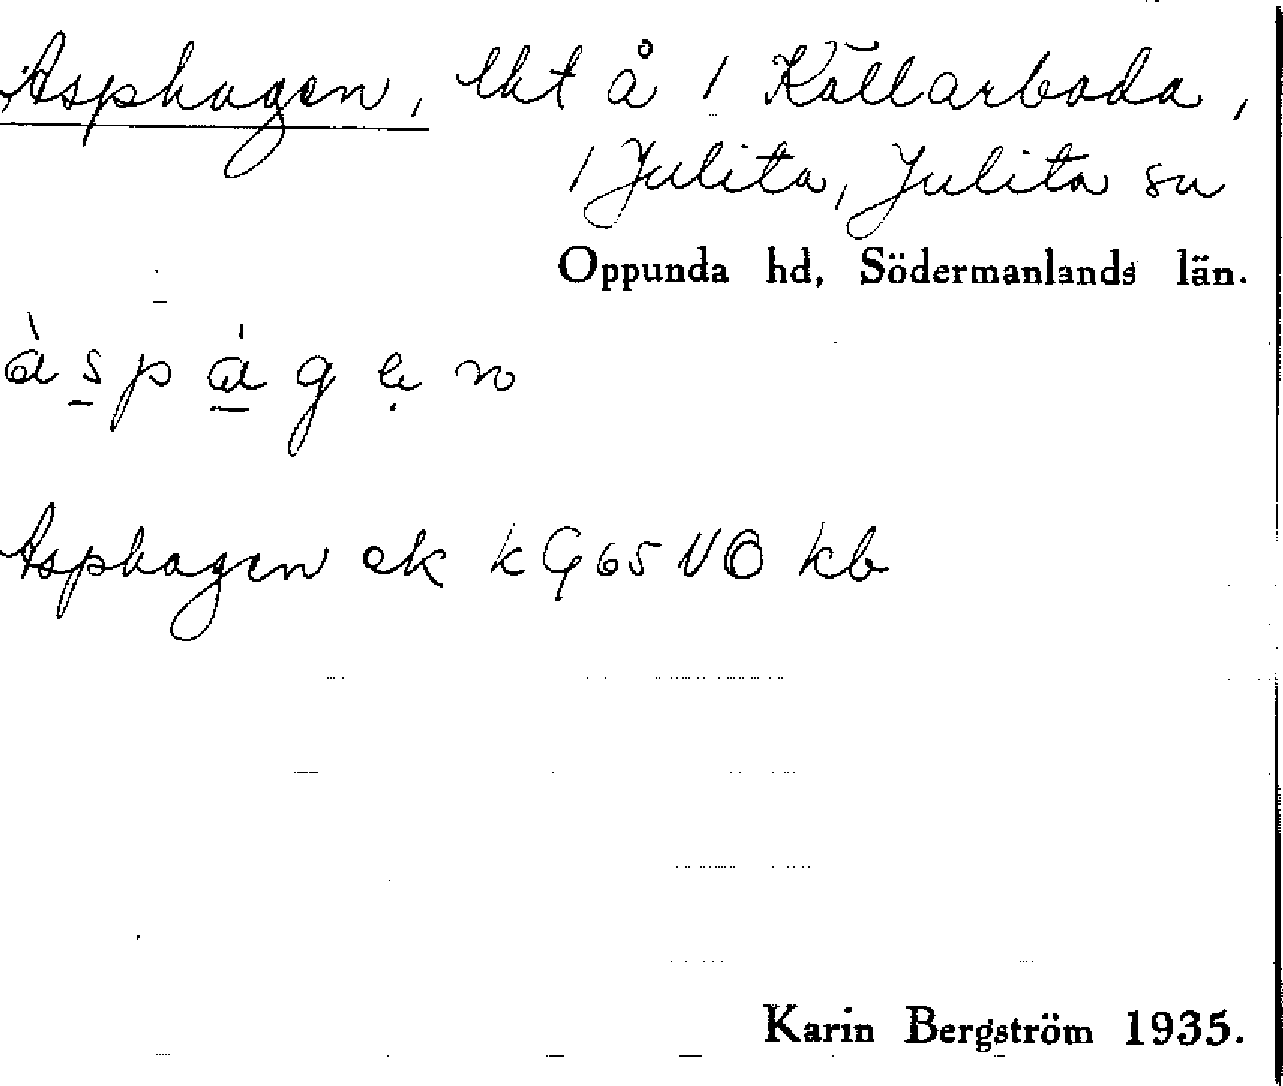 Asphagen, lht å 1 Källarboda,
1 Julita, Julita sn
Oppunda hd, Södermanlands län.
àspágẹn
Asphagen ek kG65NO kb
Karin Bergström 1935.